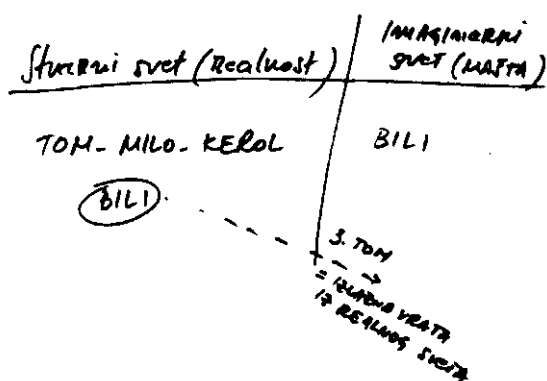 Stvarni svet (Realnost)
IMAGINARNI
svet (MAŠTA)
TOM - MILO - KEROL
BILI
BILI
3. TOM
= IZLAZNA VRATA
IZ REALNOG SVETA